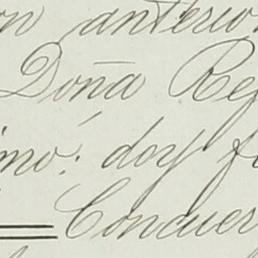 on anterior
Doña Reg
imo: doy f
Concuer